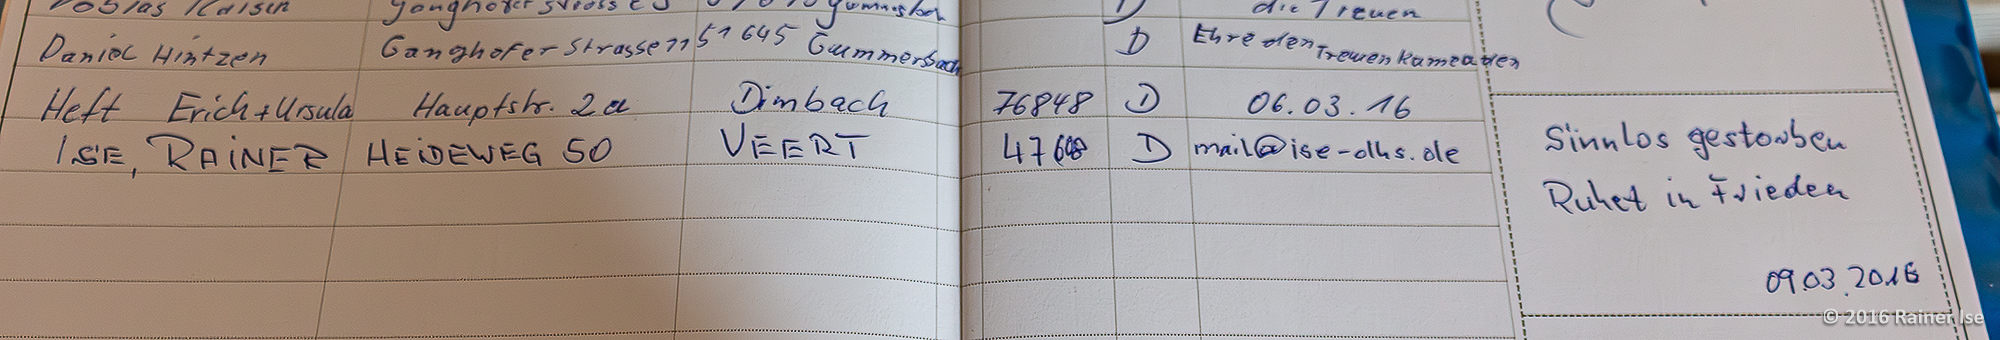 Tobias Kaiser die Treuen
Daniel Hintzen Ganghofer Strasse 11 51645 Gummersbach D Ehre den Treuen Kameraden
Heft Erich + Ursula Hauptstr. 2a Dimbach 76848 D 06.03.16
ISE, RAINER HEIDEWEG 50 VEERT 47608 D mail@ise-dhs.de
Sinnlos gestorben
Ruhet in Frieden
09.03.2016
© 2016 Rainer Ise